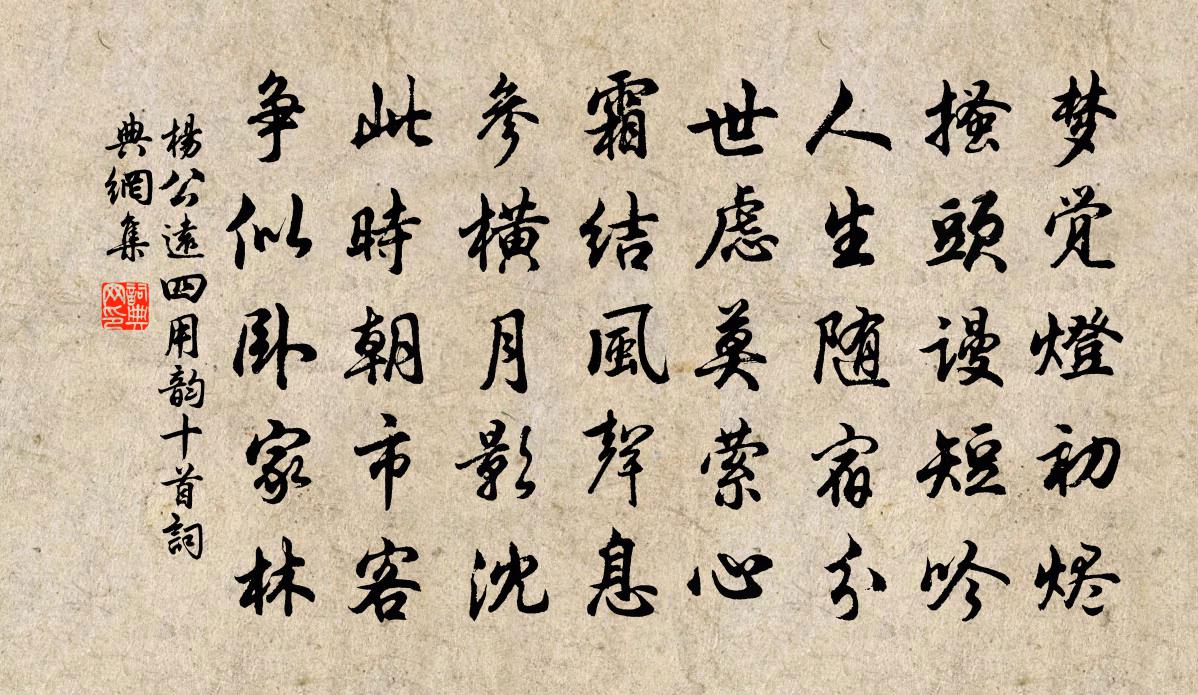 梦觉燈初烬
搔頭謾短吟
人生随宿分
世虑莫萦心
霜结風聲息
參橫月影沈
此時朝市客
争似卧家林
楊公遠四用韵十首詞
典網集
詞典网印